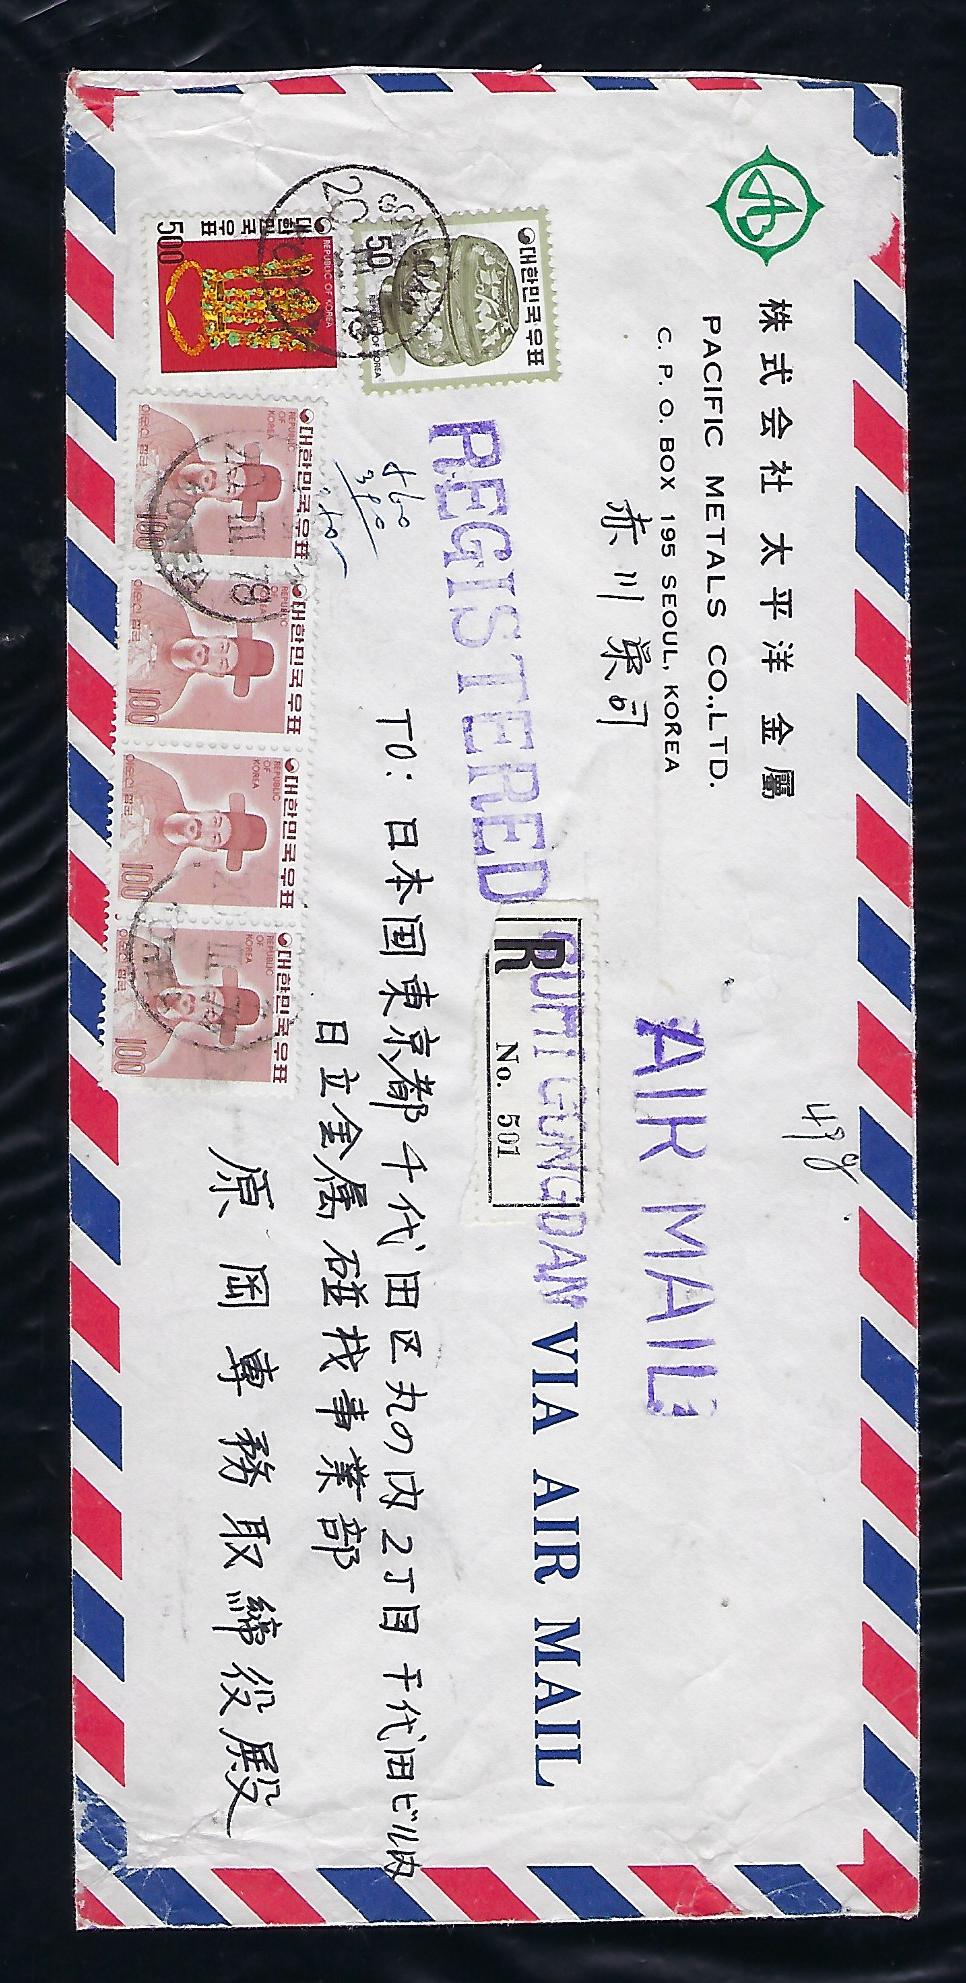 株式会社 太平洋金屬
PACIFIC METALS CO.,LTD.
C. P. O. BOX 195 SEOUL, KOREA
赤川
司
49g
AIR MAIL
REGISTERED
R
No. 501
GUMI GONGDAN
VIA AIR MAIL
TO: 日本国東京都千代田区丸の内2丁目千代田ビル内
日立金属磁材事業部
原岡專務取締役殿
대한민국우표
50
REPUBLIC OF KOREA
대한민국우표
REPUBLIC OF KOREA
500
560
390
대한민국우표
REPUBLIC
OF
KOREA
100
대한민국우표
REPUBLIC
OF
100
대한민국우표
REPUBLIC
OF
KOREA
100
대한민국우표
REPUBLIC
OF
KOREA
100
20
78
20 III 78